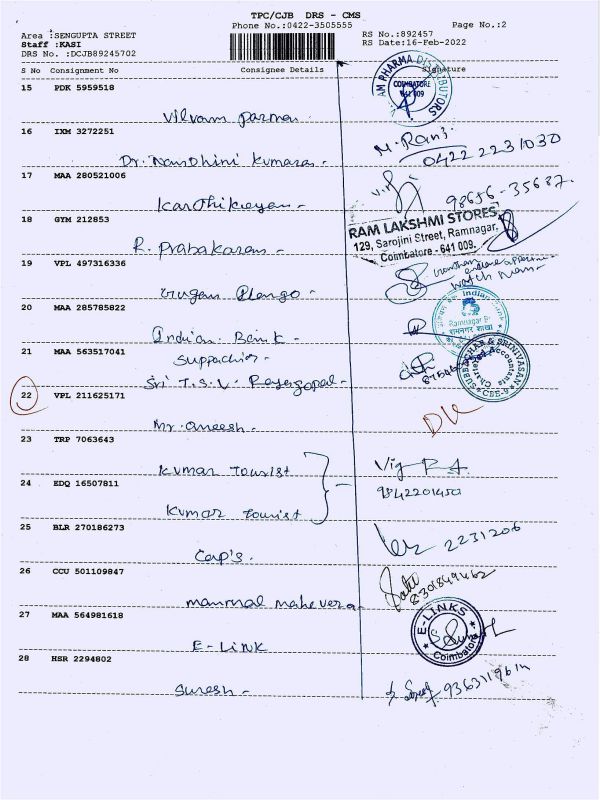 TPC/CJB DRS - CMS
Phone No.:0422-3505555
Page No.:2
Area :SENGUPTA STREET
Staff :KASI
DRS No. :DCJB89245702
RS No.:892457
RS Date:16-Feb-2022
S No Consignment No Consignee Details Signature
15 PDK 5959518
COIMBATORE
641 009
Vilvam
16 IXM 3272251
Dr. Nandhini Kumaran -
M. Rani
0422 2231030
17 MAA 280521006
Karthikeyan -
98656-35687
18 GYM 212853
R. Prabakaran -
RAM LAKSHMI STORES
129, Sarojini Street, Ramnagar,
Coimbatore - 641 009.
19 VPL 497316336
watch man
20 MAA 285785822
Indian Bank -
Indian Bank
Ramnagar Br.
रामनगर शाखा
21 MAA 563517041
Suppachin -
Sri T.S.V. Rajagopal -
Chartered Accountants
CBE-9
22 VPL 211625171
Mr. Aneesh -
23 TRP 7063643
Kumar Tourist
24 EDQ 16507811
Kumar Tourist
9842201450
25 BLR 270186273
Cap's.
2231206
26 CCU 501109847
8301849462
27 MAA 564981618
E-Link
E-LINKS
Coimbatore
28 HSR 2294802
Suresh -